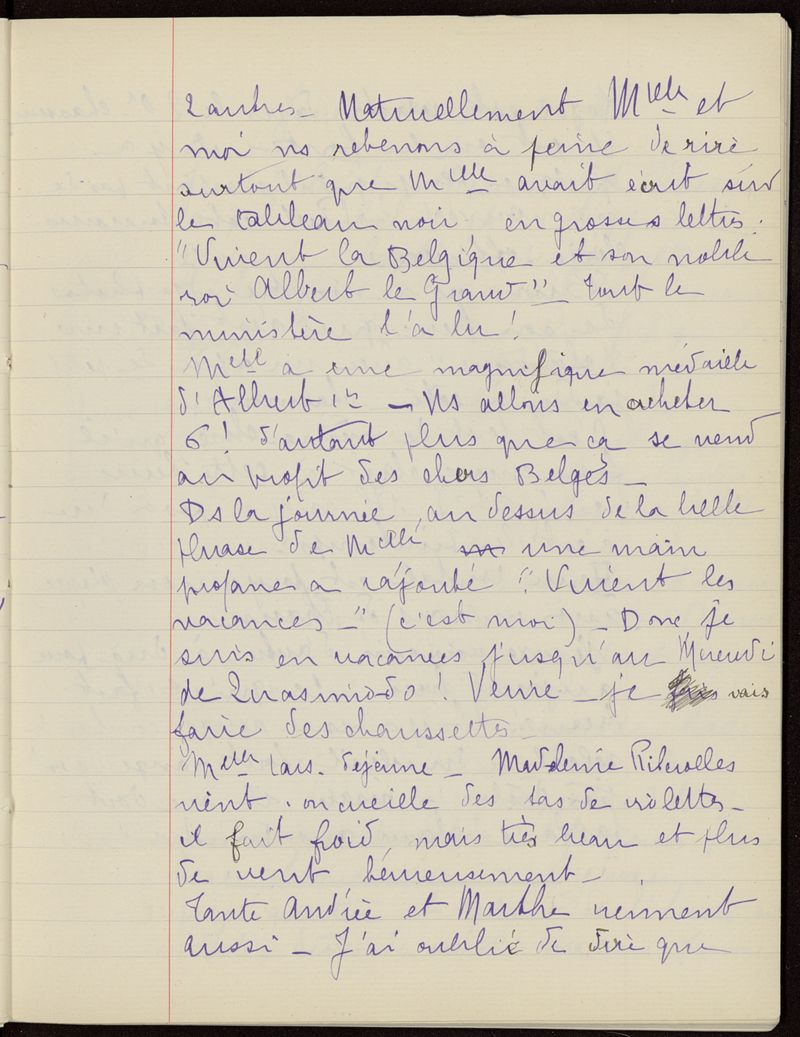 2 autres – Naturellement Mlle et
moi ns retenons à peine de rire
surtout que Mlle avait écrit sur
le tableau noir, en grosses lettres :
"Vivent la Belgique et son noble
roi Albert le Grand" – Tout le
ministère l'a lu !
Melle a une magnifique médaille
d'Albert 1er – Ns allons en acheter
6 ! d'autant plus que ça se vend
au profit des chers Belges –
Ds la journée, au dessus de la belle
phrase de Melle une main
profane a rajouté "Vivent les
vacances –" (c'est moi) – Donc je
suis en vacances jusqu'au Mercredi
de Quasimodo ! Veine – je vais
faire des chaussettes –
Melles déjeune – Madeleine
vient. on cueille des tas de violettes –
il fait froid, mais très beau et plus
de vent heureusement –
Tante Andrée et Marthe viennent
aussi – J'ai oublié de dire que